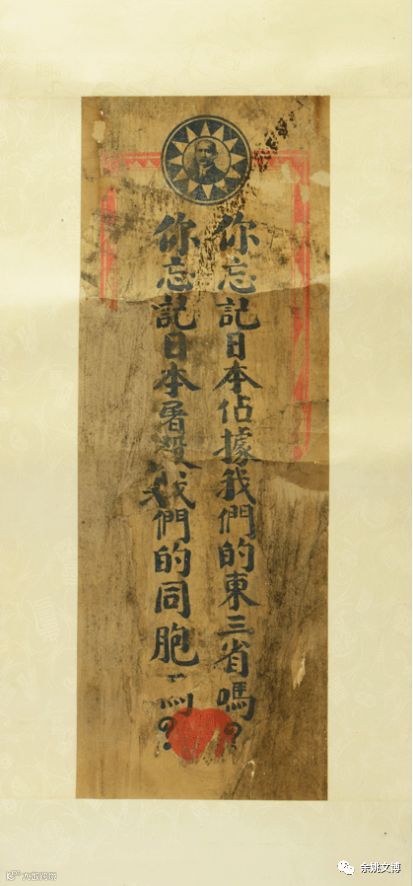 你忘記日本佔據我們的東三省嗎？
你忘記日本屠殺我們的同胞嗎？
余姚文博